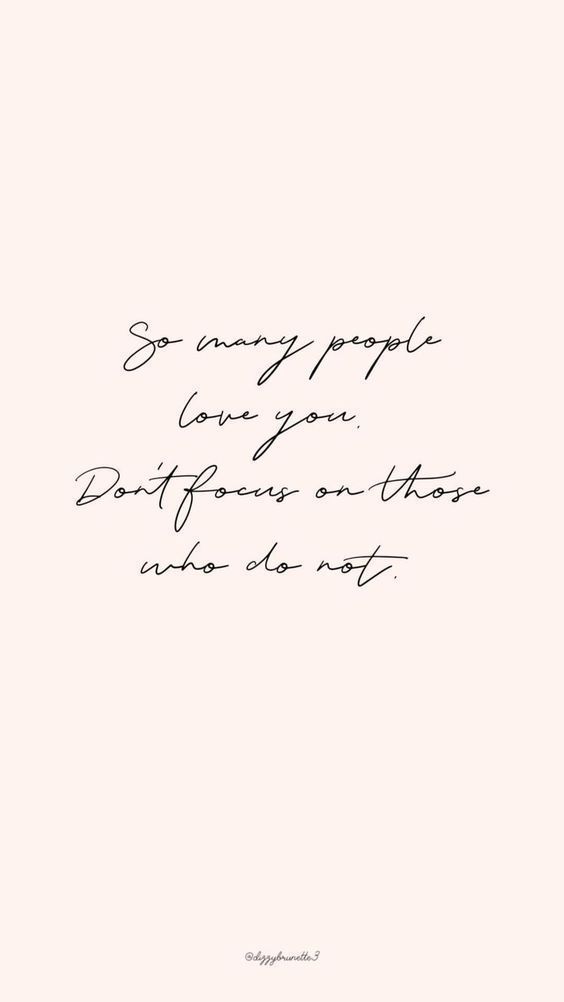 So many people
love you.
Don't focus on those
who do not.
@dizzybrunette3